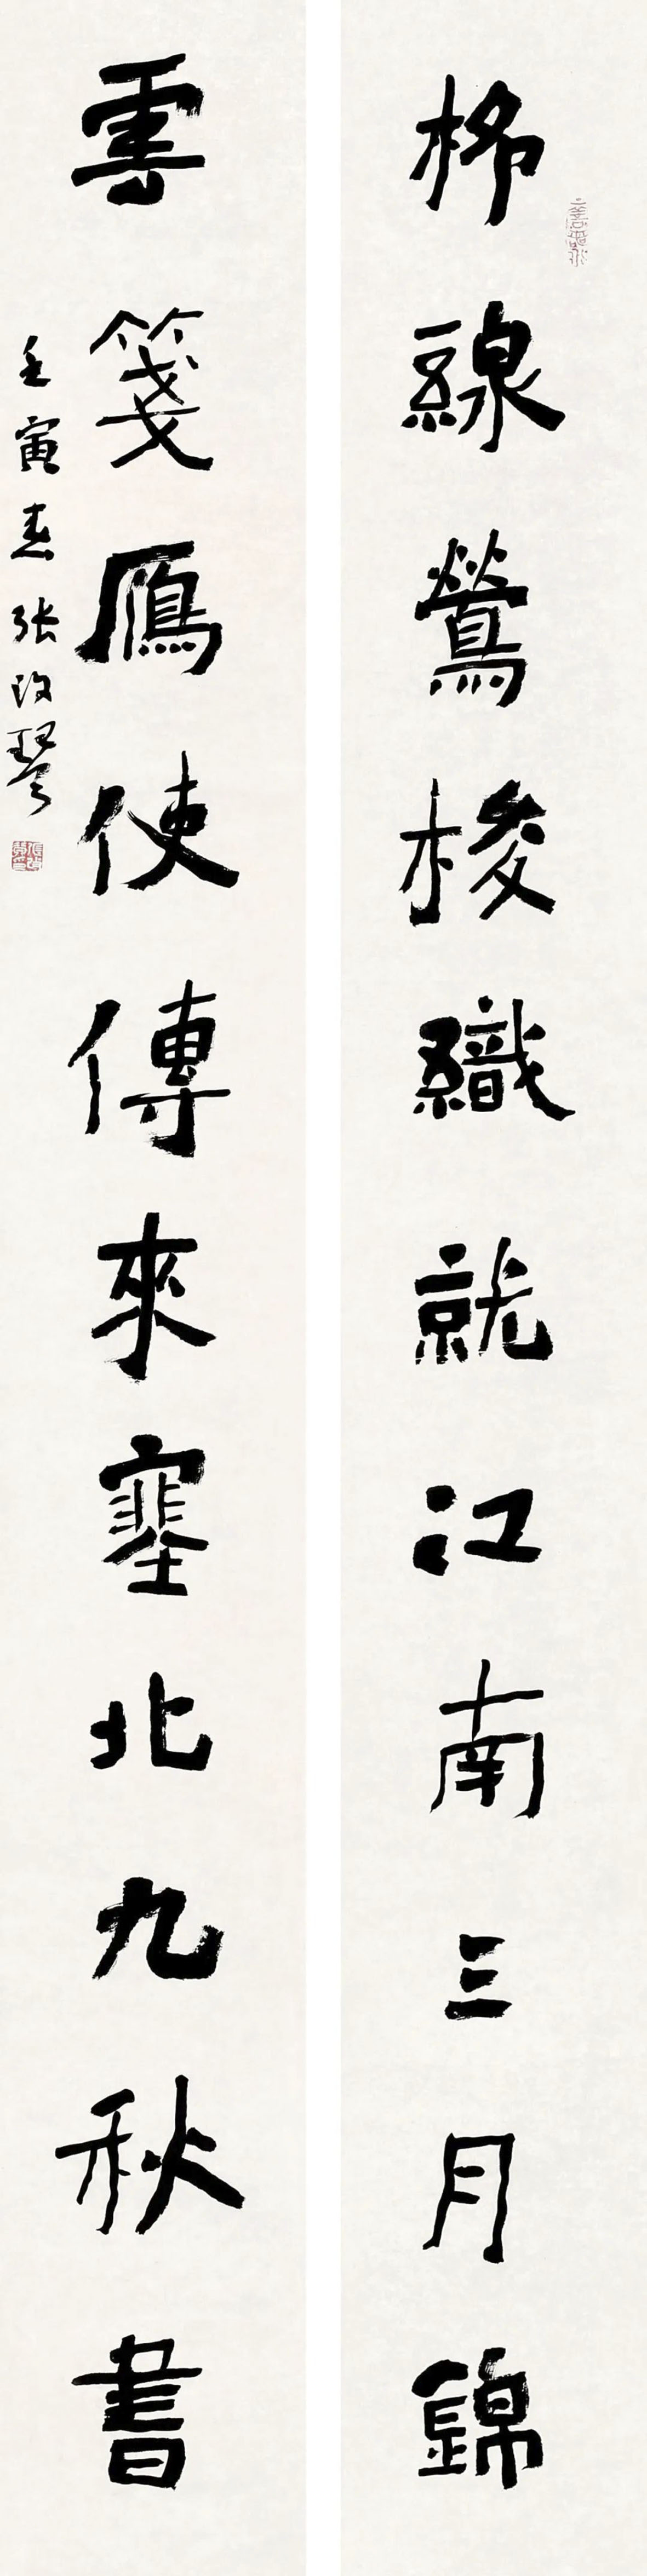 柳線鶯梭織就江南三月錦
雲箋雁使傳來塞北九秋書
壬寅春張改琴